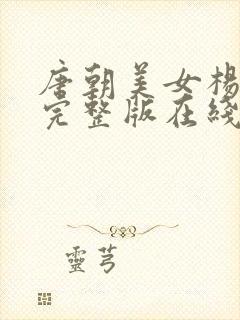 唐朝美女楊
完整版在綫
靈芎